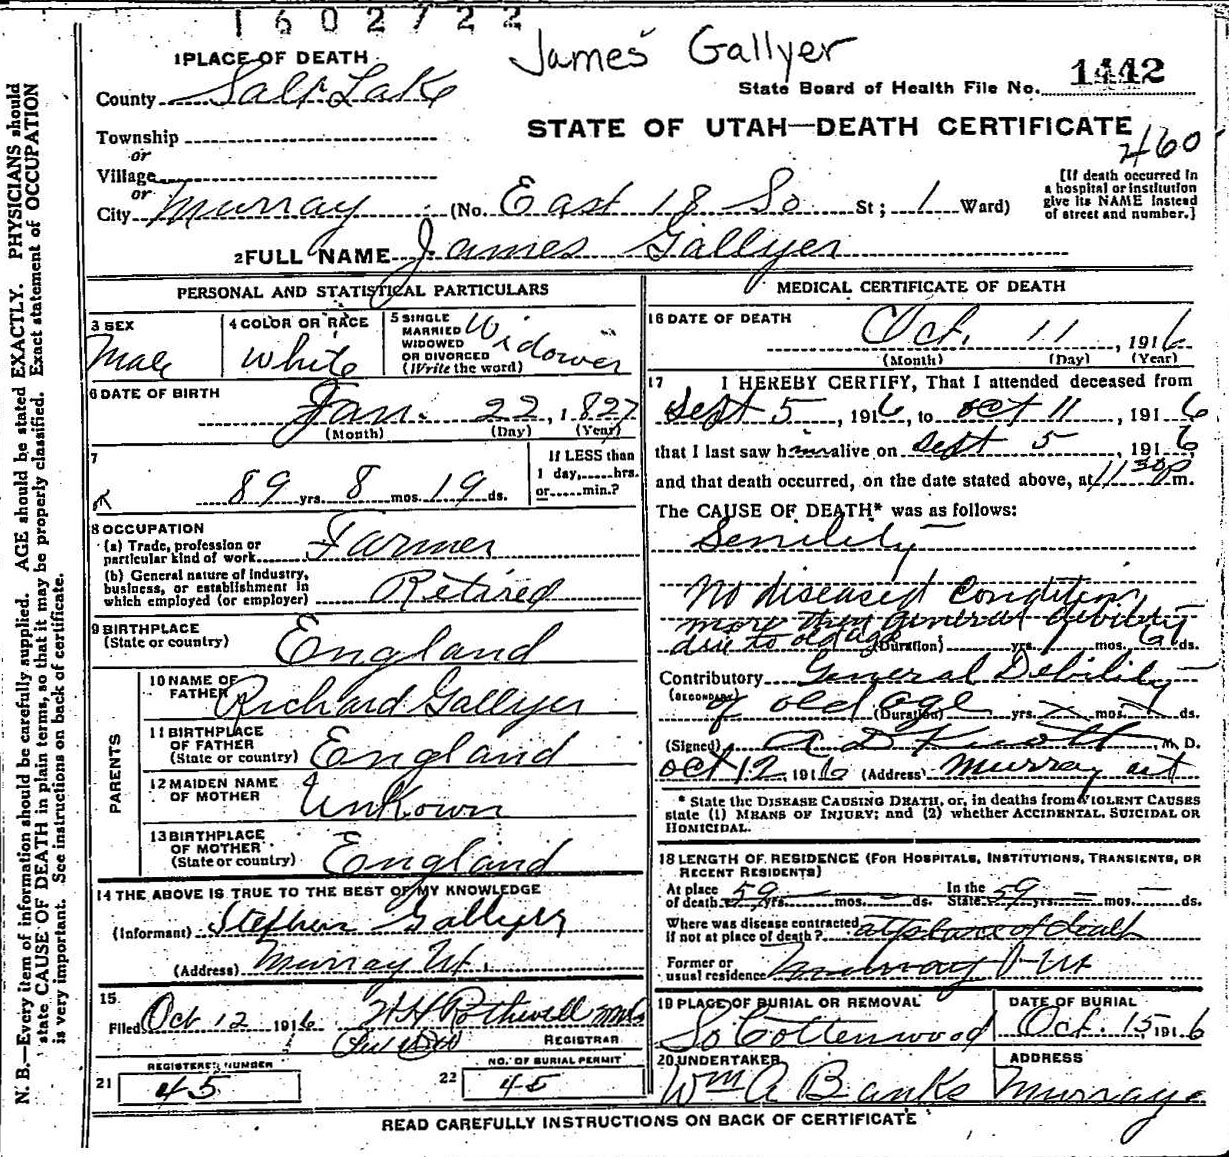 1602722
James Gallyer
1 PLACE OF DEATH
County Salt Lake
State Board of Health File No. 1442
Township
STATE OF UTAH—DEATH CERTIFICATE
or
460
Village
or
City Murray (No. East 18 So St; 1 Ward)
[If death occurred in
a hospital or institution
give its NAME instead
of street and number.]
2 FULL NAME James Gallyer
PERSONAL AND STATISTICAL PARTICULARS
3 SEX
Male
4 COLOR OR RACE
White
5 SINGLE
MARRIED
WIDOWED
OR DIVORCED
(Write the word)
Widower
6 DATE OF BIRTH
Jan. 22, 1827
(Month) (Day) (Year)
7
89 yrs. 8 mos. 19 ds.
If LESS than
1 day,......hrs.
or......min.?
8 OCCUPATION
(a) Trade, profession or
particular kind of work Farmer
(b) General nature of industry,
business, or establishment in
which employed (or employer) Retired
9 BIRTHPLACE
(State or country) England
PARENTS
10 NAME OF
FATHER Richard Gallyer
11 BIRTHPLACE
OF FATHER
(State or country) England
12 MAIDEN NAME
OF MOTHER Unkown
13 BIRTHPLACE
OF MOTHER
(State or country) England
14 THE ABOVE IS TRUE TO THE BEST OF MY KNOWLEDGE
(Informant) Stephen Gallyer
(Address) Murray Ut.
15
Filed Oct 12 1916 H H Rothwell
REGISTRAR
REGISTERED NUMBER
21 45
NO. OF BURIAL PERMIT
22 45
MEDICAL CERTIFICATE OF DEATH
16 DATE OF DEATH
Oct. 11, 1916
(Month) (Day) (Year)
17 I HEREBY CERTIFY, That I attended deceased from
Sept 5, 1916, to Oct 11, 1916
that I last saw him alive on Sept 5, 1916
and that death occurred, on the date stated above, at 11 30 P m.
The CAUSE OF DEATH* was as follows:
Senility
No diseased Condition
more than General debility
due to old age (Duration) yrs. mos. ds.
Contributory General Debility
(SECONDARY)
of old age (Duration) yrs. mos. ds.
(Signed) A D Knott, M. D.
Oct 12, 1916 (Address) Murray ut
* State the DISEASE CAUSING DEATH, or, in deaths from VIOLENT CAUSES
state (1) MEANS OF INJURY; and (2) whether ACCIDENTAL, SUICIDAL OR
HOMICIDAL.
18 LENGTH OF RESIDENCE (FOR HOSPITALS, INSTITUTIONS, TRANSIENTS, OR
RECENT RESIDENTS)
At place
of death 59 yrs. mos. ds. In the
State 59 yrs. mos. ds.
Where was disease contracted
if not at place of death? at place of death
Former or
usual residence Murray Ut
19 PLACE OF BURIAL OR REMOVAL
So Cottonwood
DATE OF BURIAL
Oct. 15, 1916
20 UNDERTAKER
Wm A Banks
ADDRESS
Murray
READ CAREFULLY INSTRUCTIONS ON BACK OF CERTIFICATE
N. B.—Every item of information should be carefully supplied. AGE should be stated EXACTLY. PHYSICIANS should
state CAUSE OF DEATH in plain terms, so that it may be properly classified. Exact statement of OCCUPATION
is very important. See instructions on back of certificate.